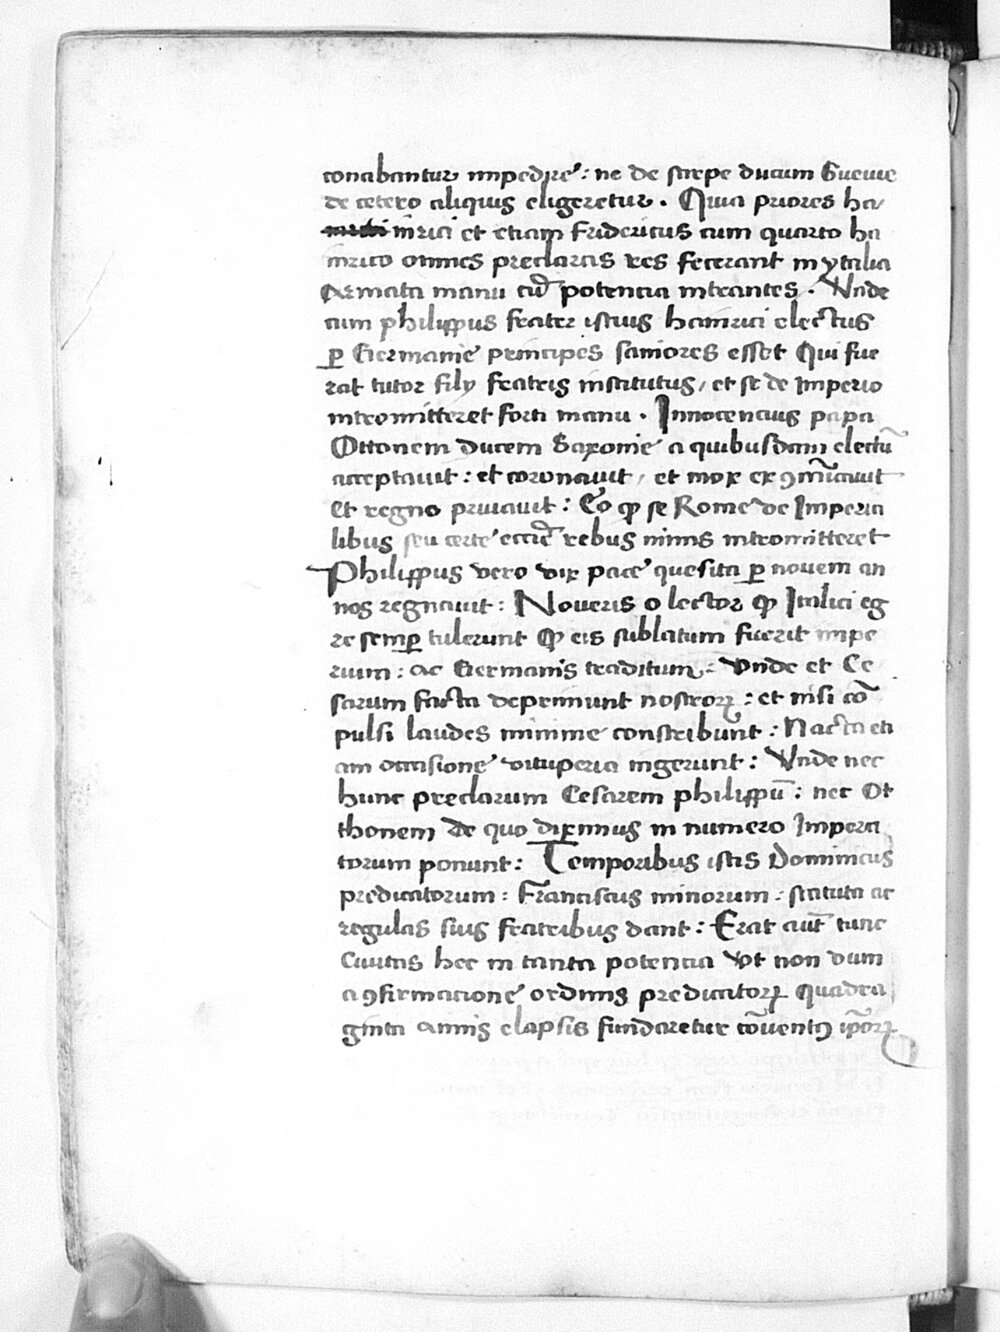 conabantur impedire: ne de stirpe ducum Sueuie
de cetero aliquis eligeretur. Quia priores ha/
inrici et etiam fridericus cum quarto ha
inrico omnes preclaras res fecerant in ytalia
Armata manu cũ potencia intrantes. Vnde
cum philippus frater istius hainrici electus
ꝑ Germanie principes saniores esset Qui fue
rat tutor filij fratris institutus, et se de Imperio
intromitteret forti manu. Innocencius papa
Ottonem ducem Saxonie a quibusdam electũ
acceptauit: et coronauit, et mox exꝯmũicauit
et regno priuauit: Eo ꝙ se Rome de Imperia
libus seu certe eccĩe rebus nimis intromitteret
Philippus vero vix pace quesita ꝑ nouem an
nos regnauit: Noueris o lector ꝙ Italici eg
re semꝑ tulerunt ꝙ eis sublatum fuerit impe
rium: ac Germanis traditum: vnde et Ce
sarum facta deprimunt nostroꝝ: et nisi cõ
pulsi laudes minime conscribunt: Nacta eti
am occasione vituperia ingerunt: Vnde nec
hunc preclarum Cesarem philippũ: nec Ot
thonem de quo diximus in numero Impera
torum ponunt: Temporibus istis Dominicus
predicatorum: Franciscus minorum: statuta ac
regulas suis fratribus dant: Erat aut̃ tunc
Ciuitas hec in tanta potencia vt non dum
a ꝯfirmacione ordinis predicatoꝝ Quadra
ginta annis elapsis fundaretur cõuentꝰ ip̃oꝝ